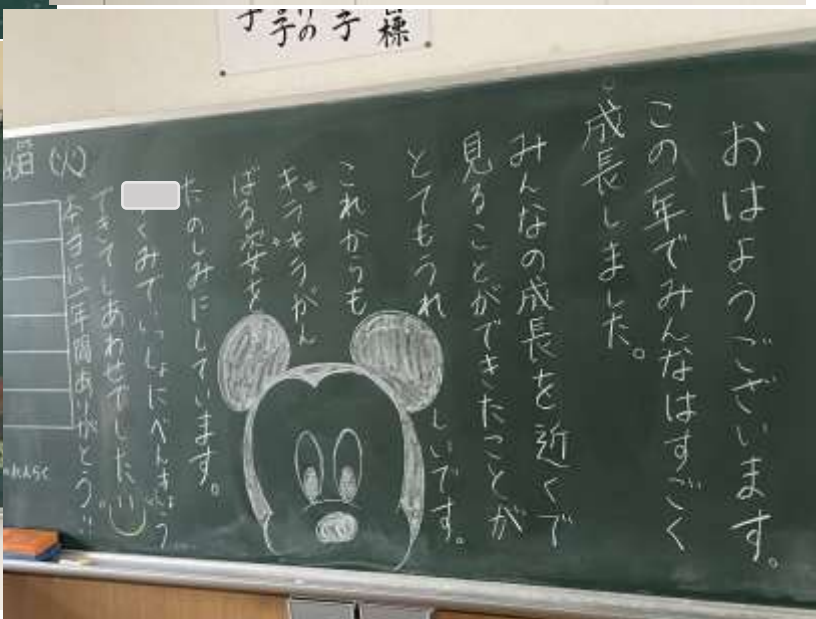 様
子
おはようございます。
この一年でみんなはすごく
成長しました。
みんなの成長を近くで
見ることができたことが
とてもうれしいです。
これからも
キラキラがん
ばる姿を
たのしみにしています。
くみで、いっしょにべんきょう
できてしあわせでした
本当に一年間ありがとう!!
(火)
れんらく